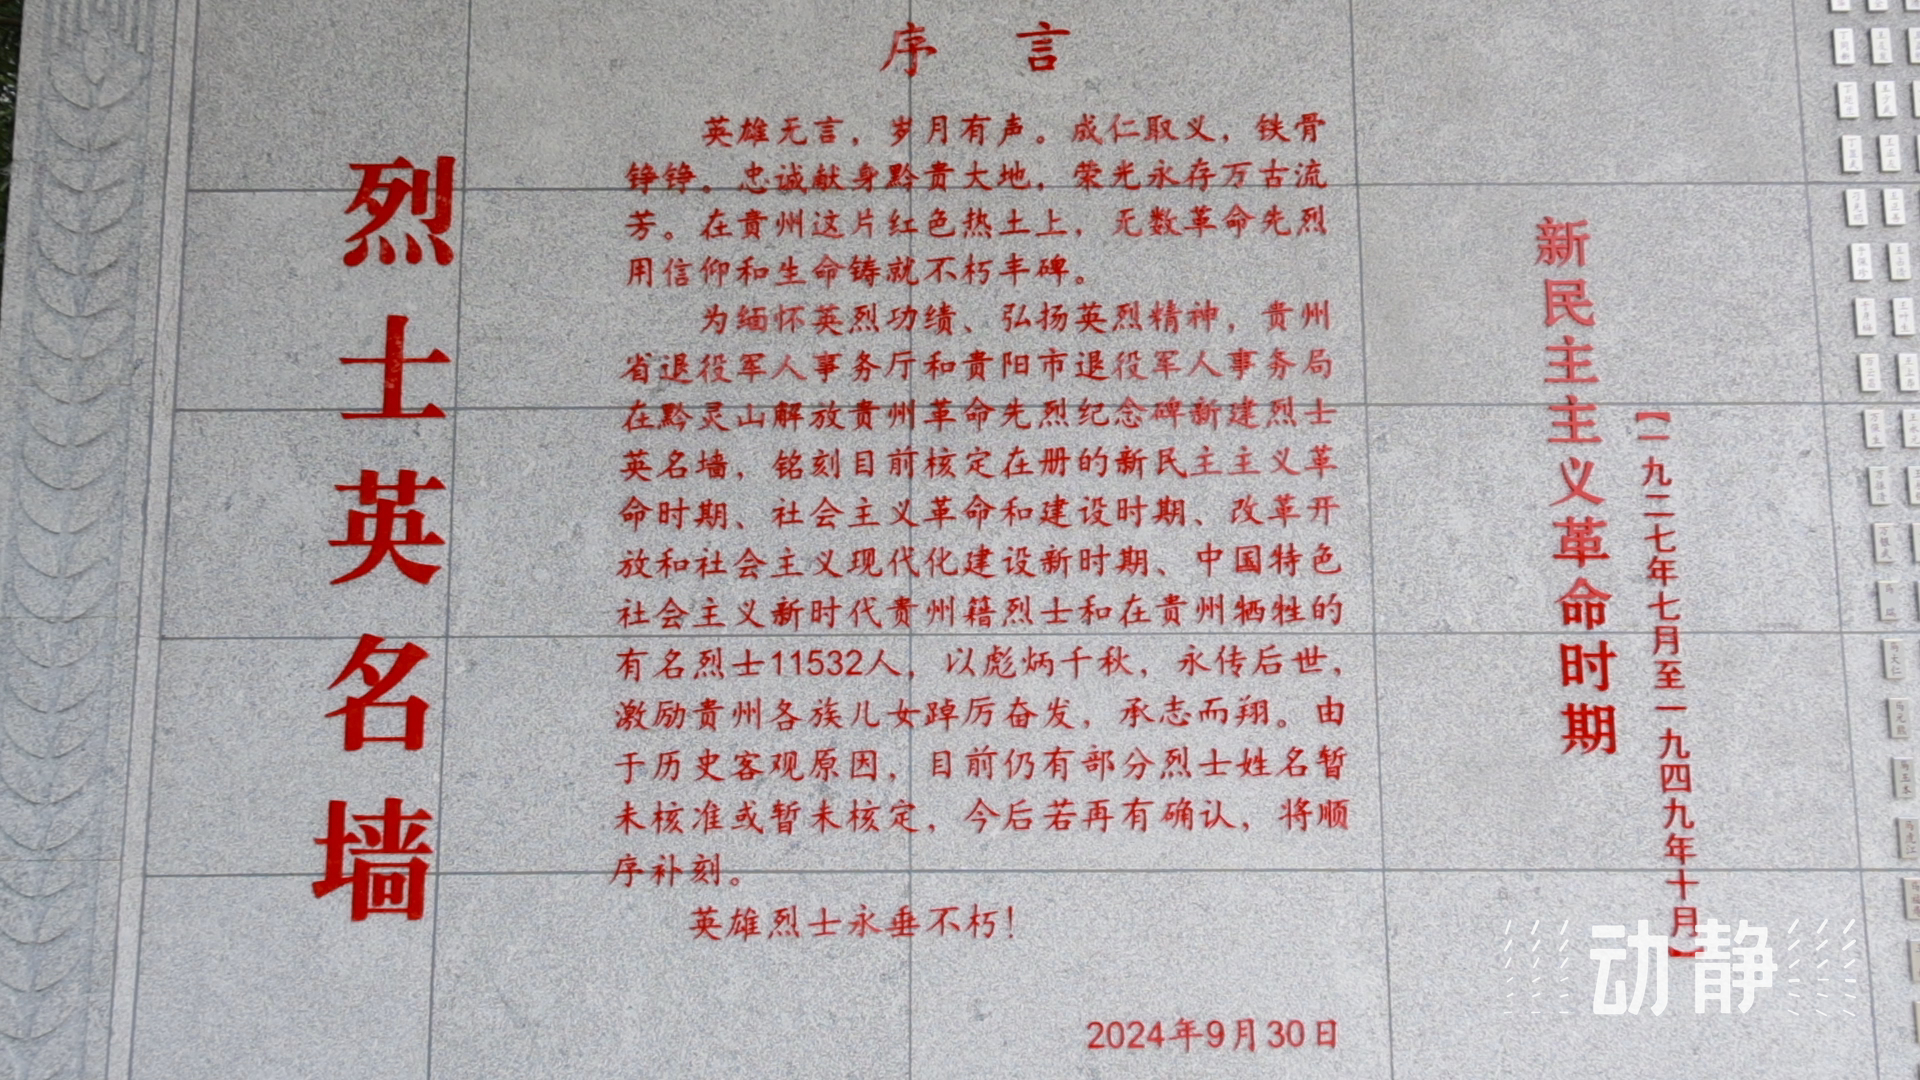 烈士英名墙
序言
英雄无言，岁月有声。成仁取义，铁骨
铮铮。忠诚献身黔贵大地，荣光永存万古流
芳。在贵州这片红色热土上，无数革命先烈
用信仰和生命铸就不朽丰碑。
为缅怀英烈功绩、弘扬英烈精神，贵州
省退役军人事务厅和贵阳市退役军人事务局
在黔灵山解放贵州革命先烈纪念碑新建烈士
英名墙，铭刻目前核定在册的新民主主义革
命时期、社会主义革命和建设时期、改革开
放和社会主义现代化建设新时期、中国特色
社会主义新时代贵州籍烈士和在贵州牺牲的
有名烈士11532人，以彪炳千秋，永传后世，
激励贵州各族儿女踔厉奋发，承志而翔。由
于历史客观原因，目前仍有部分烈士姓名暂
未核准或暂未核定，今后若再有确认，将顺
序补刻。
英雄烈士永垂不朽！
2024年9月30日
新民主主义革命时期
【一九二七年七月至一九四九年十月】
动静